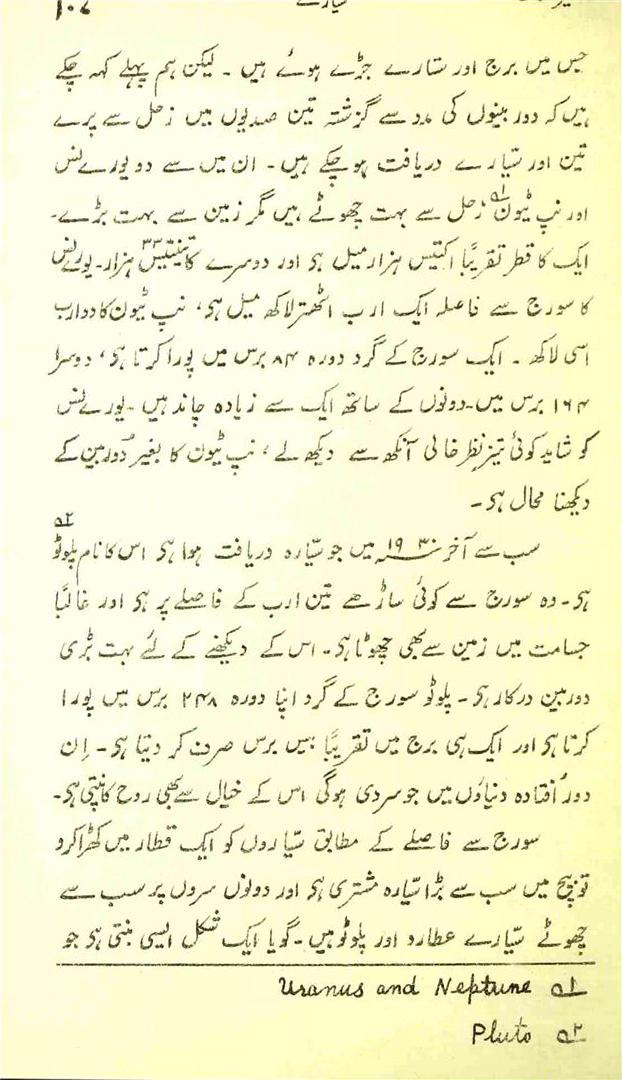 ۱۰۷ سیارے
جس میں برج اور ستارے جڑے ہوئے ہیں ۔ لیکن ہم پہلے کہہ چکے
ہیں کہ دوربینوں کی مدد سے گزشتہ تین صدیوں میں زحل سے پرے
تین اور سیّارے دریافت ہوچکے ہیں ۔ ان میں سے دو یورے نس
اور نپ ٹیون ؎۱ زحل سے بہت چھوٹے ہیں مگر زمین سے بہت بڑے ۔
ایک کا قطر تقریبًا اکتیس ہزار میل ہی اور دوسرے کا تینتیس ۳۳ ہزار ۔ یورے نس
کا سورج سے فاصلہ ایک ارب اٹھتر لاکھ میل ہی، نپ ٹیون کا دو ارب
اسی لاکھ ۔ ایک سورج کے گرد دورہ ۸۴ برس میں پورا کرتا ہی، دوسرا
۱۶۴ برس میں ۔ دونوں کے ساتھ ایک سے زیادہ چاند ہیں ۔ یورے نس
کو شاید کوئی تیز نظر خالی آنکھ سے دیکھ لے، نپ ٹیون کا بغیر دوربین کے
دیکھنا محال ہی ۔
سب سے آخر ۱۹۳۰ میں جو سیّارہ دریافت ہوا ہی اس کا نام پلوٹو ؎۲
ہی ۔ وہ سورج سے کوئی ساڑھے تین ارب کے فاصلے پر ہی اور غالبًا
جسامت میں زمین سے بھی چھوٹا ہی ۔ اس کے دیکھنے کے لئے بہت بڑی
دوربین درکار ہی ۔ پلوٹو سورج کے گرد اپنا دورہ ۲۴۸ برس میں پورا
کرتا ہی اور ایک ہی برج میں تقریبًا بیس برس صرف کر دیتا ہی ۔ اِن
دور اُفتادہ دنیاؤں میں جو سردی ہوگی اس کے خیال سے بھی روح کانپتی ہی ۔
سورج سے فاصلے کے مطابق سیّاروں کو ایک قطار میں کھڑا کرو
تو بیچ میں سب سے بڑا سیّارہ مشتری ہی اور دونوں سروں پر سب سے
چھوٹے سیّارے عطارد اور پلوٹو ہیں ۔ گویا ایک شکل ایسی بنتی ہی جو
؎۱ Uranus and Neptune
؎۲ Pluto